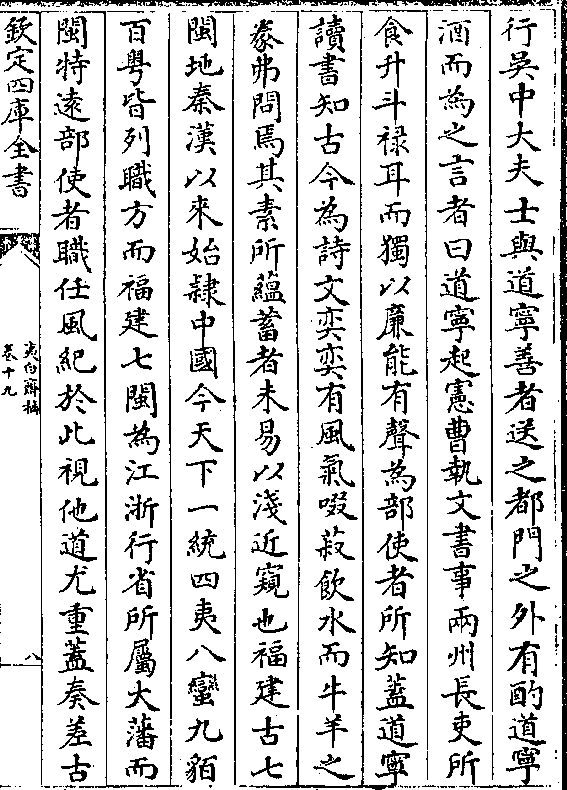 行吳中大夫士與道寧善者送之都門之外有酌道寧
酒而為之言者曰道寧起憲曹執文書事兩州長吏所
食升斗祿耳而獨以廉能有聲為部使者所知蓋道寧
讀書知古今為詩文奕奕有風氣啜菽飲水而牛羊之
豢弗問焉其素所蘊蓄者未易以淺近窺也福建古七
閩地秦漢以來始隸中國今天下一統四夷八蠻九貊
百粵皆列職方而福建七閩為江浙行省所屬大藩而
閩特遠部使者職任風紀於此視他道尤重蓋奏差古
欽定四庫全書
夷白齋稿
卷十九
八